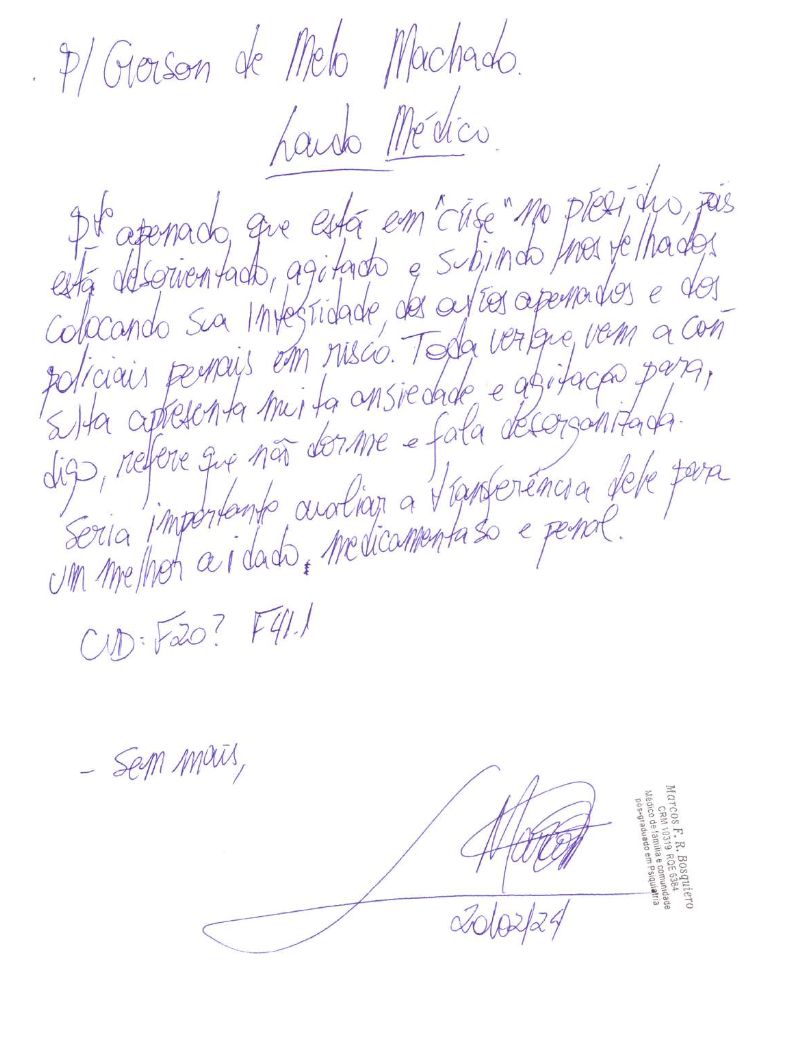 P/ Gerson de Melo Machado.
Laudo Médico.
Pte apenado, que está em "crise" no presídio, pois
está desorientado, agitado e subindo nos telhados
colocando sua integridade, dos outros apenados e dos
policiais penais em risco. Toda vez que vem a con
sulta apresenta muita ansiedade e agitação para,
digo, refere que não dorme e fala desorganizada.
Seria importante avaliar a tranferência dele para
um melhor cuidado, medicamentoso e penal.
CID: F20? F41.1
- Sem mais,
Marcos F. R. Bosquiero
CRM 10319 RQE 6364
Médico de família e comunidade
pós-graduado em Psiquiatria
20/02/24